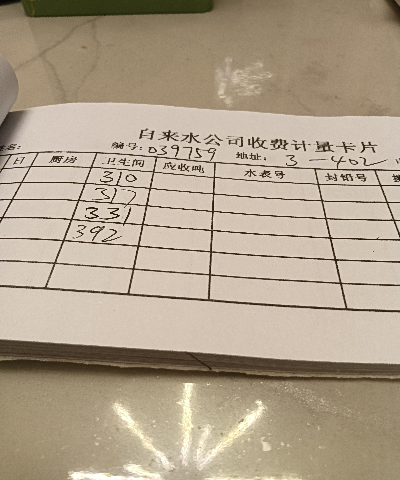 自来水公司收费计量卡片
编号:039759 地址: 3-402
日 厨房 卫生间 应收吨 水表号 封铅号
310
317
331
392